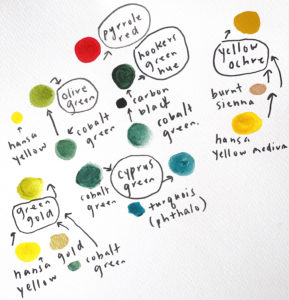 pyrrole
red
hookers
green
hue
carbon
black
cobalt
green.
olive
green
cobalt
green
hansa
yellow
yellow
ochre
burnt
sienna
hansa
yellow mediun
cyprus
green
cobalt
green
turquois
(phthalo)
green
gold
hansa
yellow
gold
cobalt
green